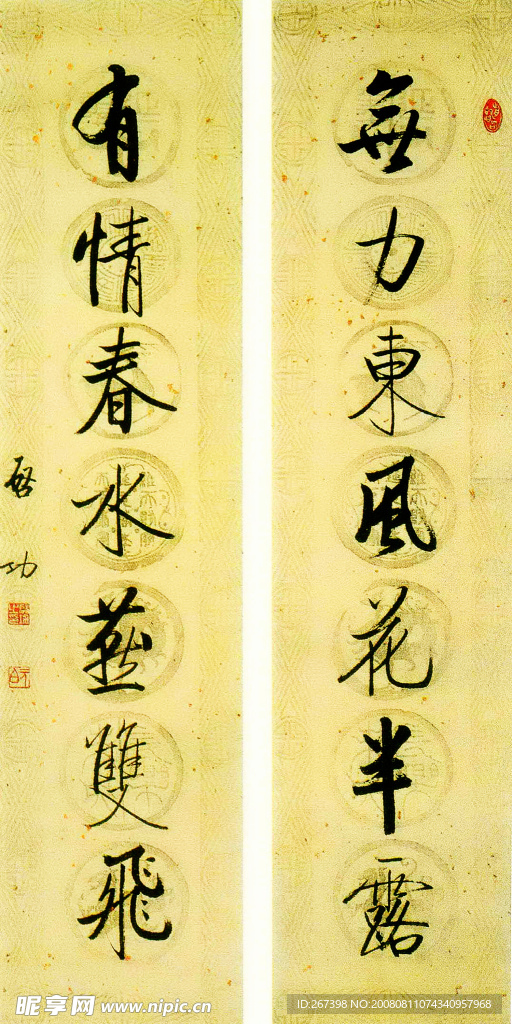 無力東風花半露
有情春水燕雙飛
啓功
昵享网 www.nipic.cn
ID:267398 NO:20080811074340957968